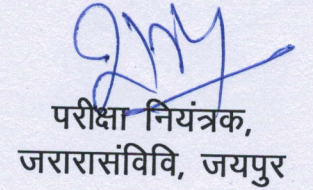 परीक्षा नियंत्रक,
जरारासंविवि, जयपुर